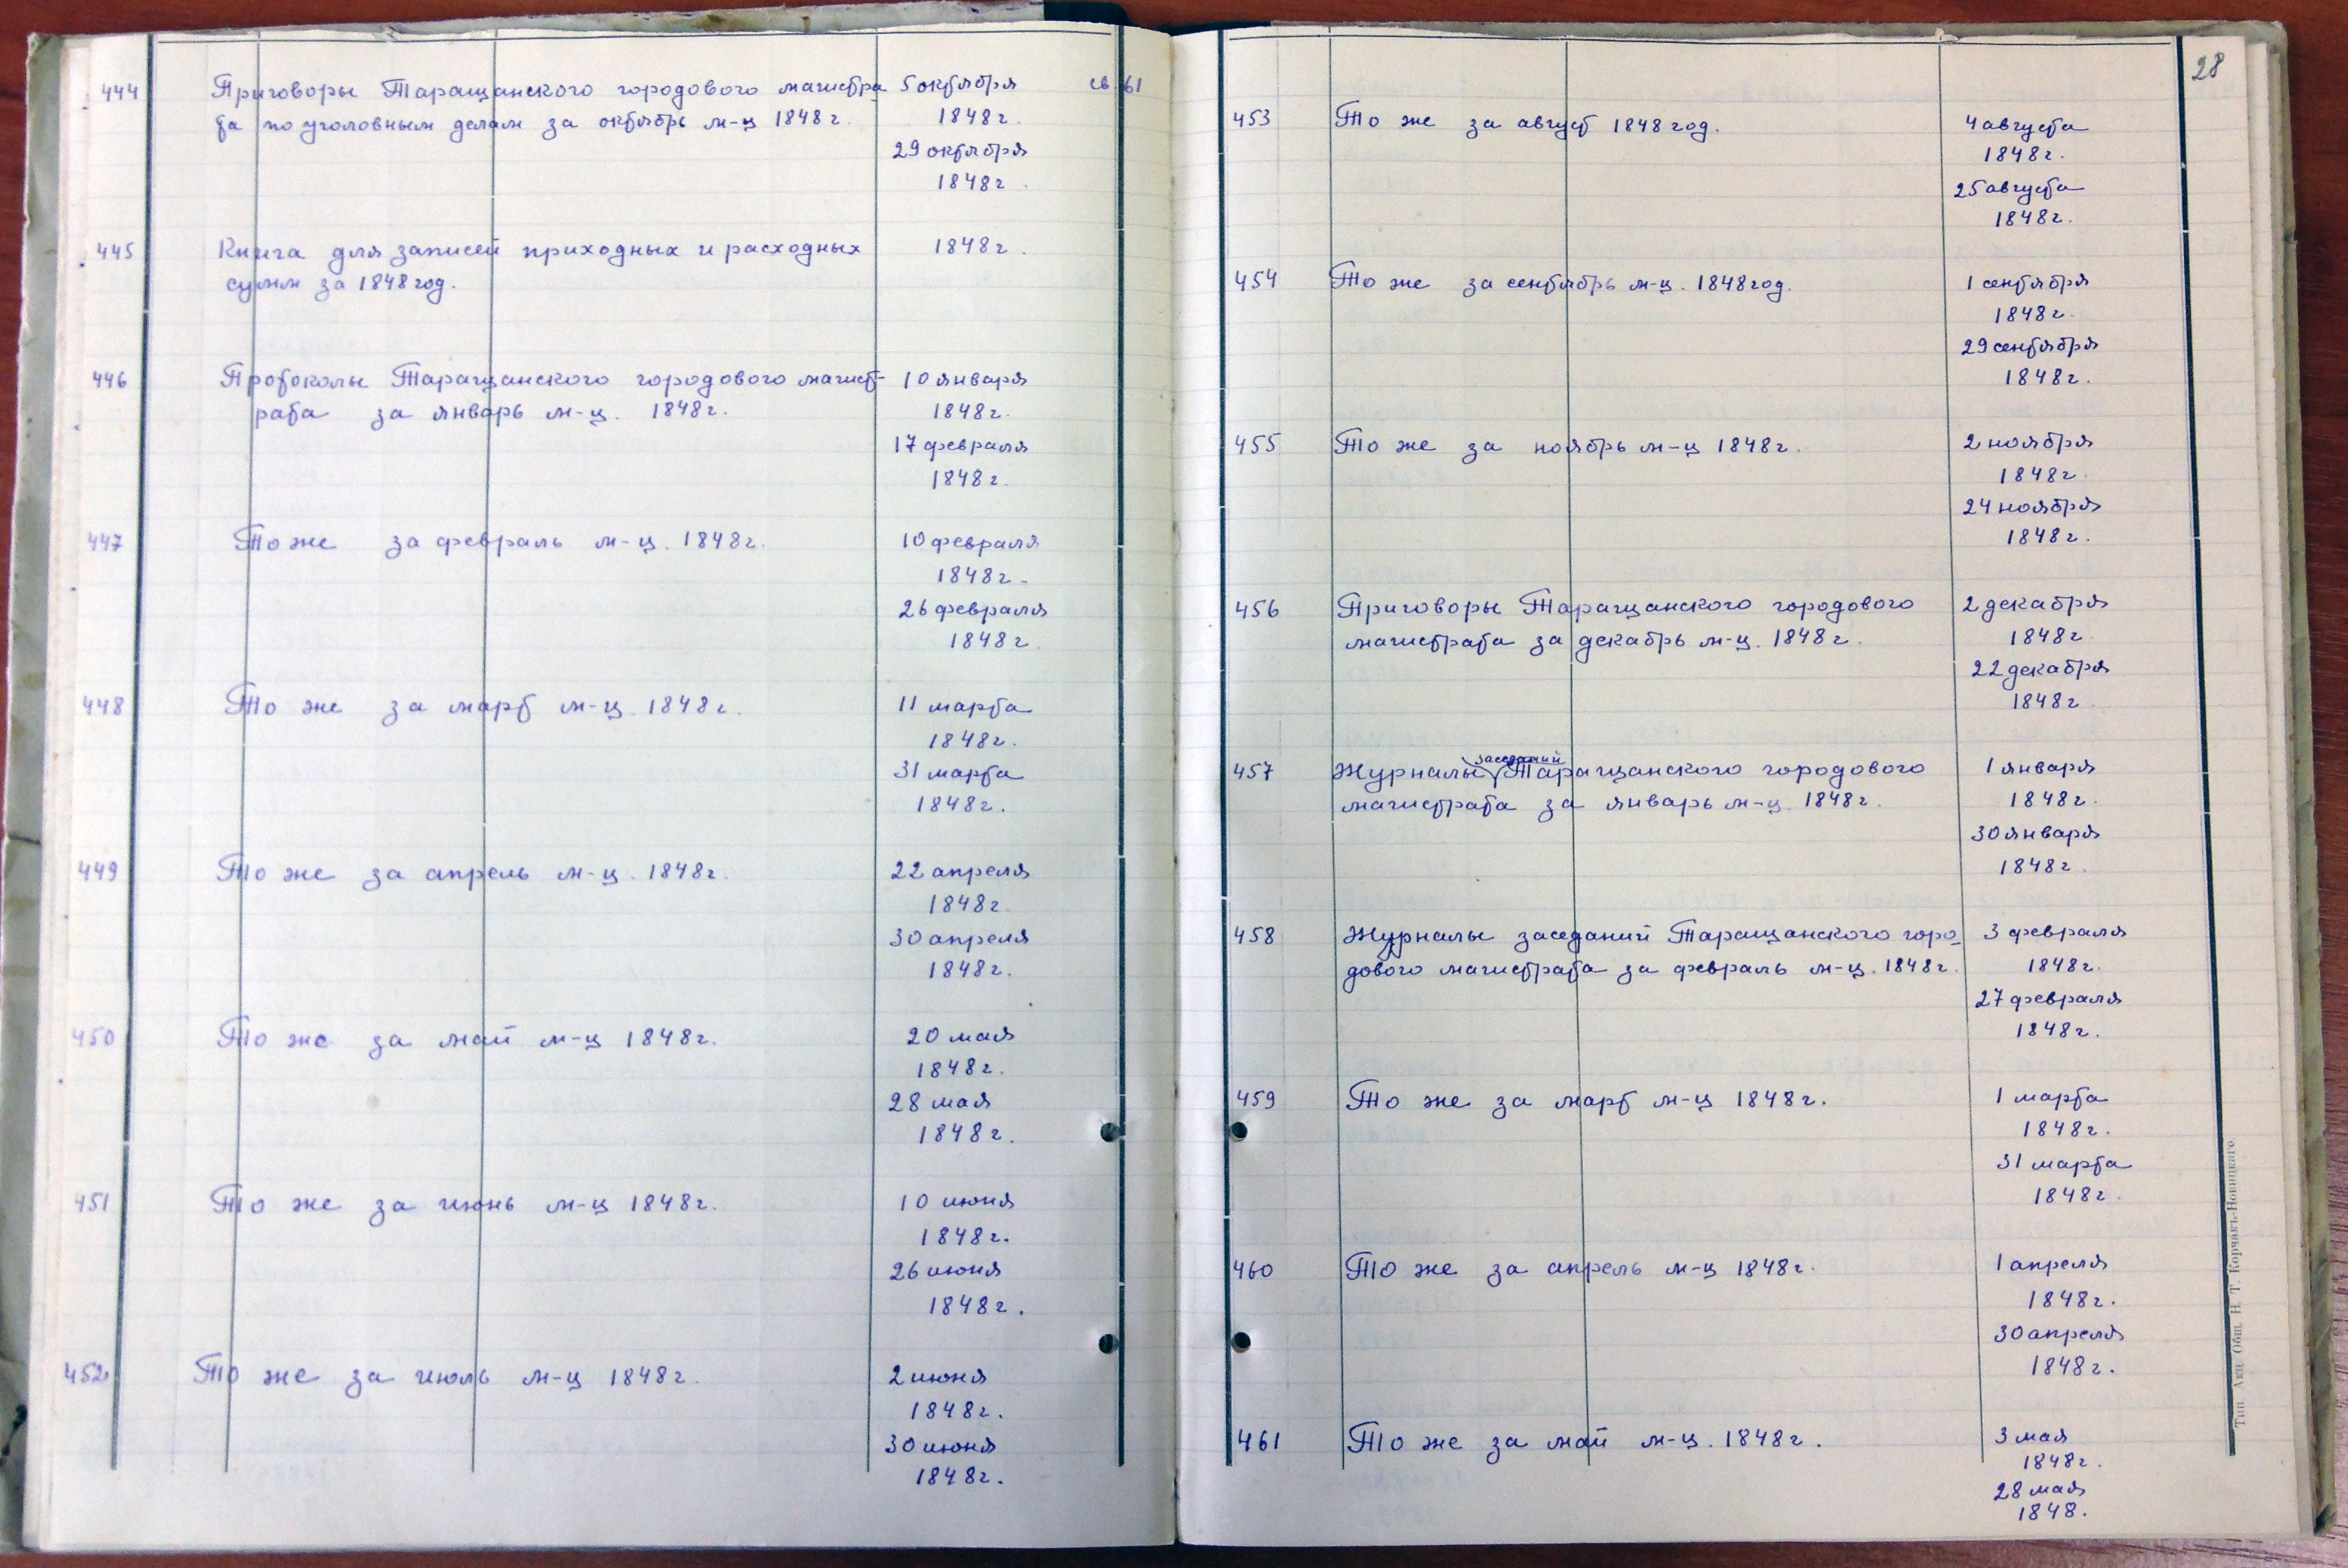 444 Приговоры Таращанского городового магистра- 5 октября св 61
та по уголовным делам за октябрь м-ц 1848 г. 1848 г.
29 октября
1848 г.
445 Книга для записей приходных и расходных 1848 г.
сумм за 1848 год.
446 Протоколы Таращанского городового магист- 10 января
рата за январь м-ц. 1848 г. 1848 г.
17 февраля
1848 г.
447 То же за февраль м-ц. 1848 г. 10 февраля
1848 г.
26 февраля
1848 г.
448 То же за март м-ц. 1848 г. 11 марта
1848 г.
31 марта
1848 г.
449 То же за апрель м-ц. 1848 г. 22 апреля
1848 г.
30 апреля
1848 г.
450 То же за май м-ц 1848 г. 20 мая
1848 г.
28 мая
1848 г.
451 То же за июнь м-ц 1848 г. 10 июня
1848 г.
26 июня
1848 г.
452 То же за июль м-ц 1848 г. 2 июня
1848 г.
30 июня
1848 г.
28
453 То же за август 1848 год. 4 августа
1848 г.
25 августа
1848 г.
454 То же за сентябрь м-ц. 1848 год. 1 сентября
1848 г.
29 сентября
1848 г.
455 То же за ноябрь м-ц 1848 г. 2 ноября
1848 г.
24 ноября
1848 г.
456 Приговоры Таращанского городового 2 декабря
магистрата за декабрь м-ц. 1848 г. 1848 г
22 декабря
1848 г
заседаний
457 Журналы Таращанского городового 1 января
магистрата за январь м-ц. 1848 г. 1848 г.
30 января
1848 г.
458 Журналы заседаний Таращанского горо- 3 февраля
дового магистрата за февраль м-ц. 1848 г. 1848 г.
27 февраля
1848 г.
459 То же за март м-ц 1848 г. 1 марта
1848 г.
31 марта
1848 г.
460 То же за апрель м-ц 1848 г. 1 апреля
1848 г.
30 апреля
1848 г.
461 То же за май м-ц. 1848 г. 3 мая
1848 г.
28 мая
1848.
Тип. Акц. Общ. Н. Т. Корчакъ-Новицкаго.